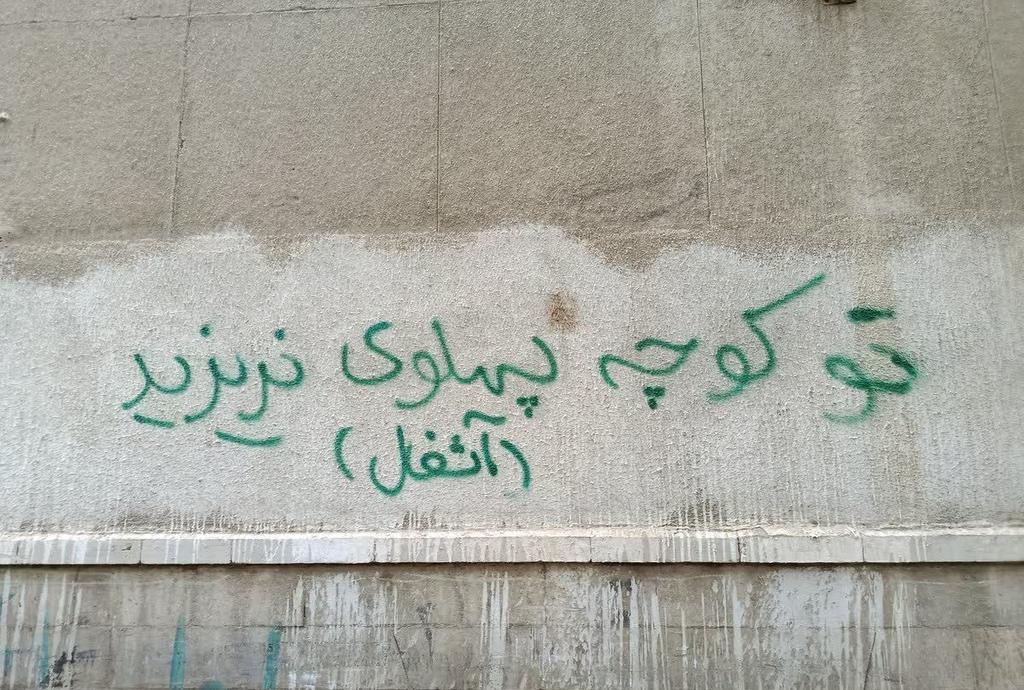 تو کوچه پهلوی نریزید
(آثفال)